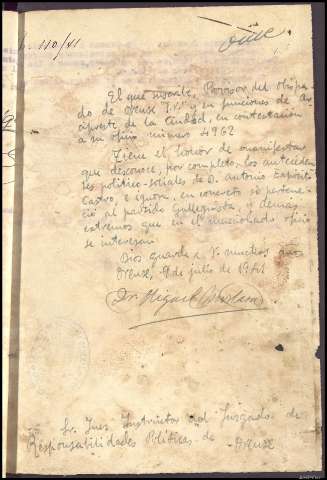 110/41
El que suscribe, Provisor del Obispa-
do de Orense y en funciones de Ar-
cipreste de la Ciudad, en contestación
a su oficio número 4962
Tiene el honor de manifestar
que desconoce, por completo, los anteceden-
tes político-sociales de D. Antonio Expósito
Castro, e ignora, en concreto si pertene-
ció al partido Galleguista, y demás
extremos que en el mencionado oficio
se interesan.
Dios guarde a V. muchos años
Orense, 9 de julio de 1941
Dr. Miguel
Sr. Juez Instructor del Juzgado de
Responsabilidades Políticas de Orense